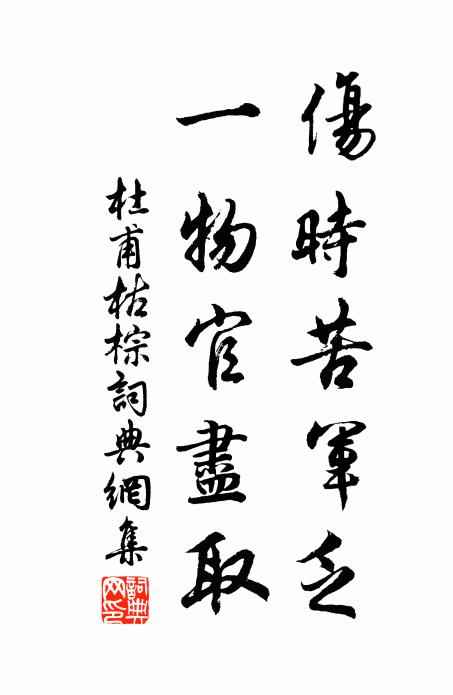 傷時苦軍乏
一物官盡取
杜甫枯棕詞典網集
詞典
网印